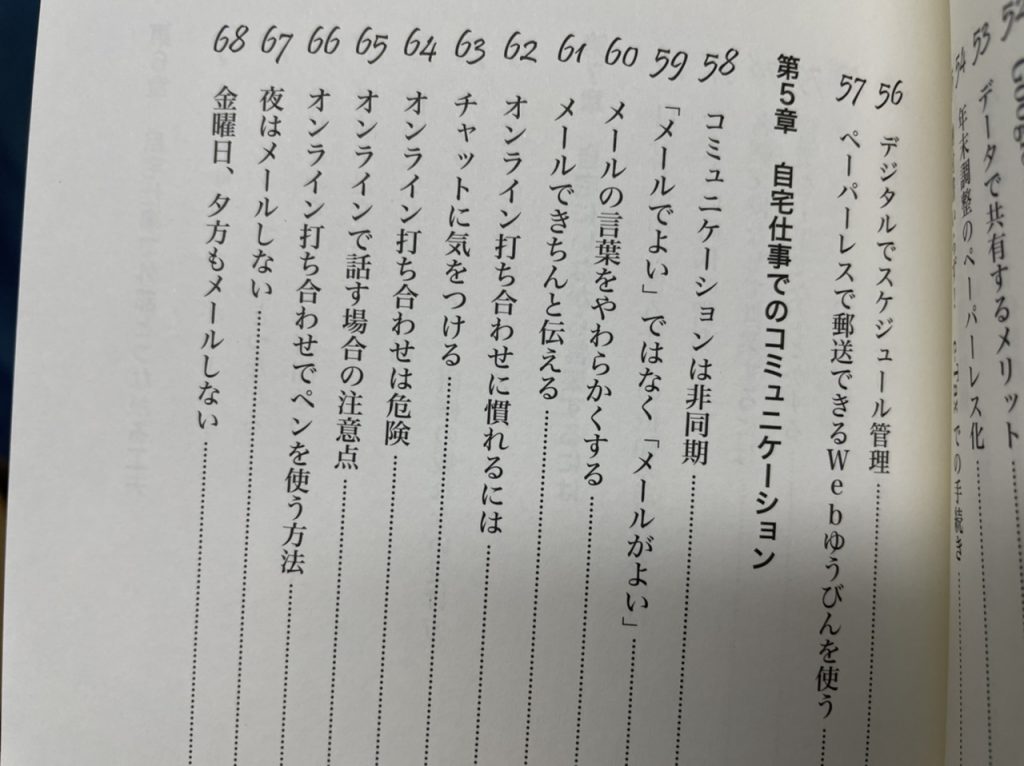 53 データで共有するメリット
54 年末調整のペーパーレス化
での手続き
56 デジタルでスケジュール管理
57 ペーパーレスで郵送できるWebゆうびんを使う
第5章 自宅仕事でのコミュニケーション
58 コミュニケーションは非同期
59 「メールでよい」ではなく「メールがよい」
60 メールの言葉をやわらかくする
61 メールできちんと伝える
62 オンライン打ち合わせに慣れるには
63 チャットに気をつける
64 オンライン打ち合わせは危険
65 オンラインで話す場合の注意点
66 オンライン打ち合わせでペンを使う方法
67 夜はメールしない
68 金曜日、夕方もメールしない